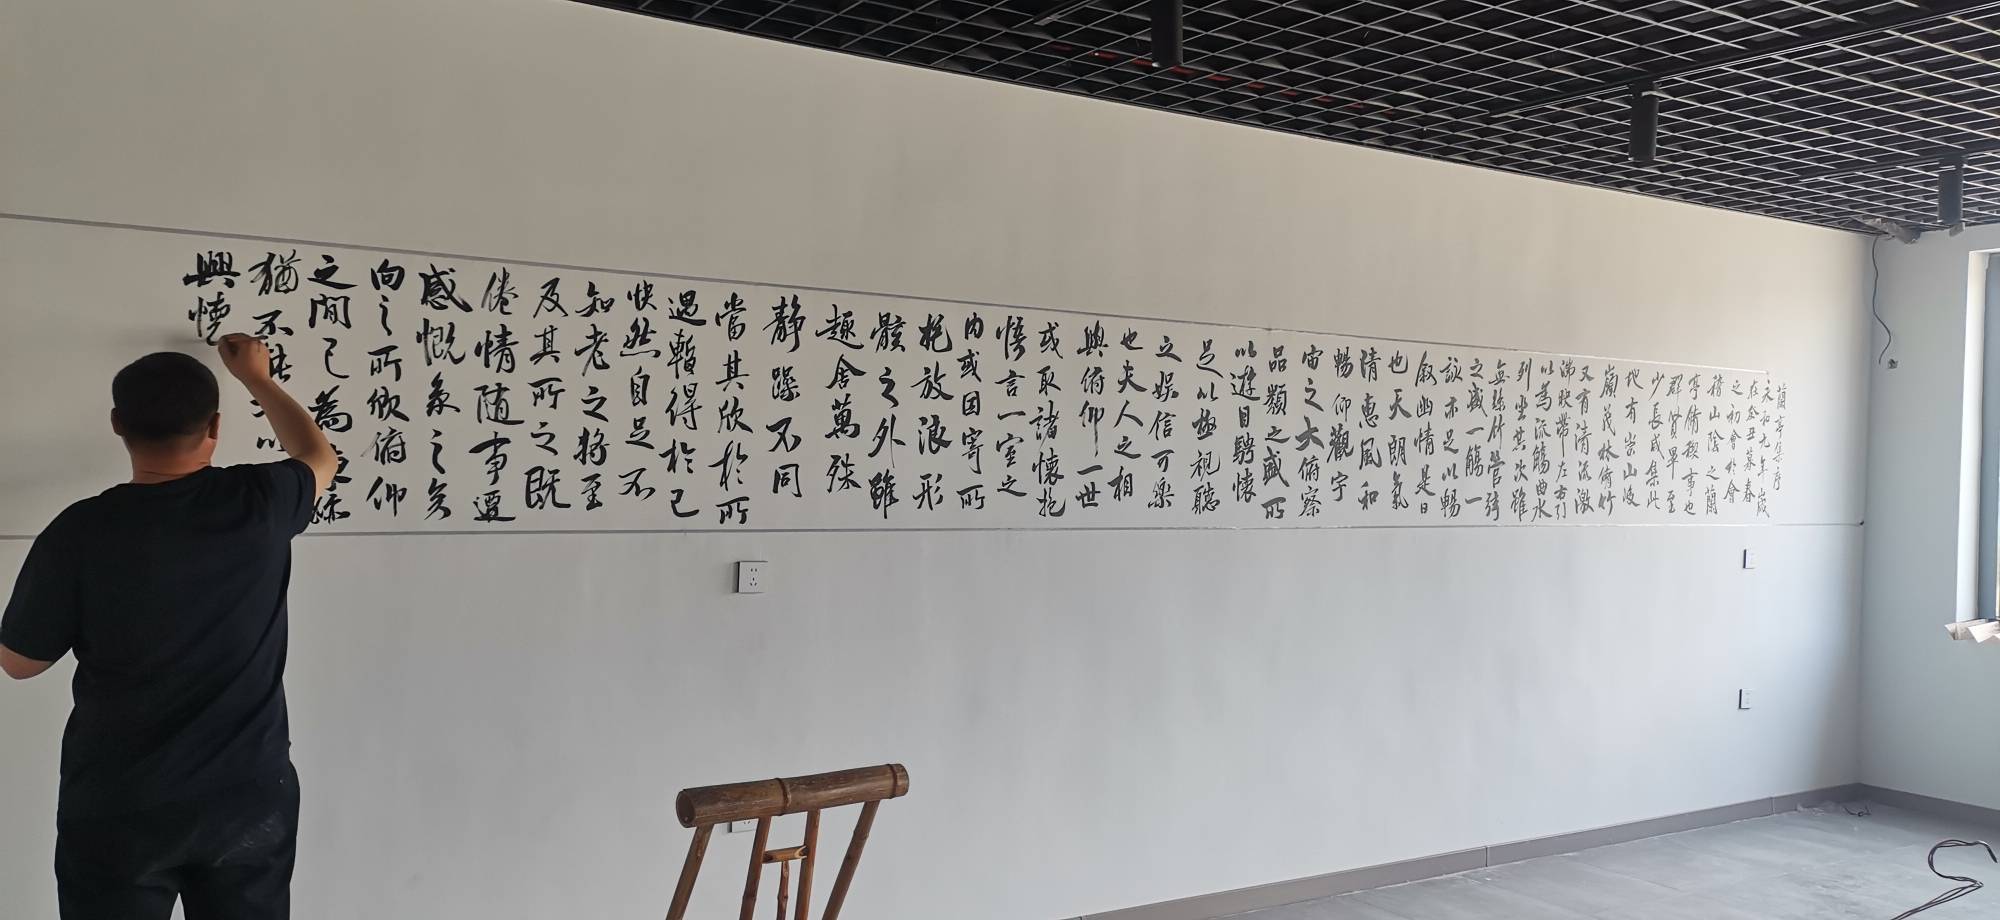 蘭亭集序
永和九年歲
在癸丑暮春
之初會於會
稽山陰之蘭
亭脩禊事也
群賢畢至
少長咸集此
地有崇山峻
嶺茂林脩竹
又有清流激
湍映帶左右引
以為流觴曲水
列坐其次雖
無絲竹管弦
之盛一觴一
詠亦足以暢
叙幽情是日
也天朗氣
情惠風和
暢仰觀宇
宙之大俯察
品類之盛所
以遊目騁懷
足以極視聽
之娱信可樂
也夫人之相
與俯仰一世
或取諸懷抱
悟言一室之
内或因寄所
托放浪形
骸之外雖
趣舍萬殊
静躁不同
當其欣於所
遇暫得於己
快然自足不
知老之將至
及其所之既
倦情随事遷
感慨系之矣
向之所欣俯仰
之間已為
猶不能不以
興懷